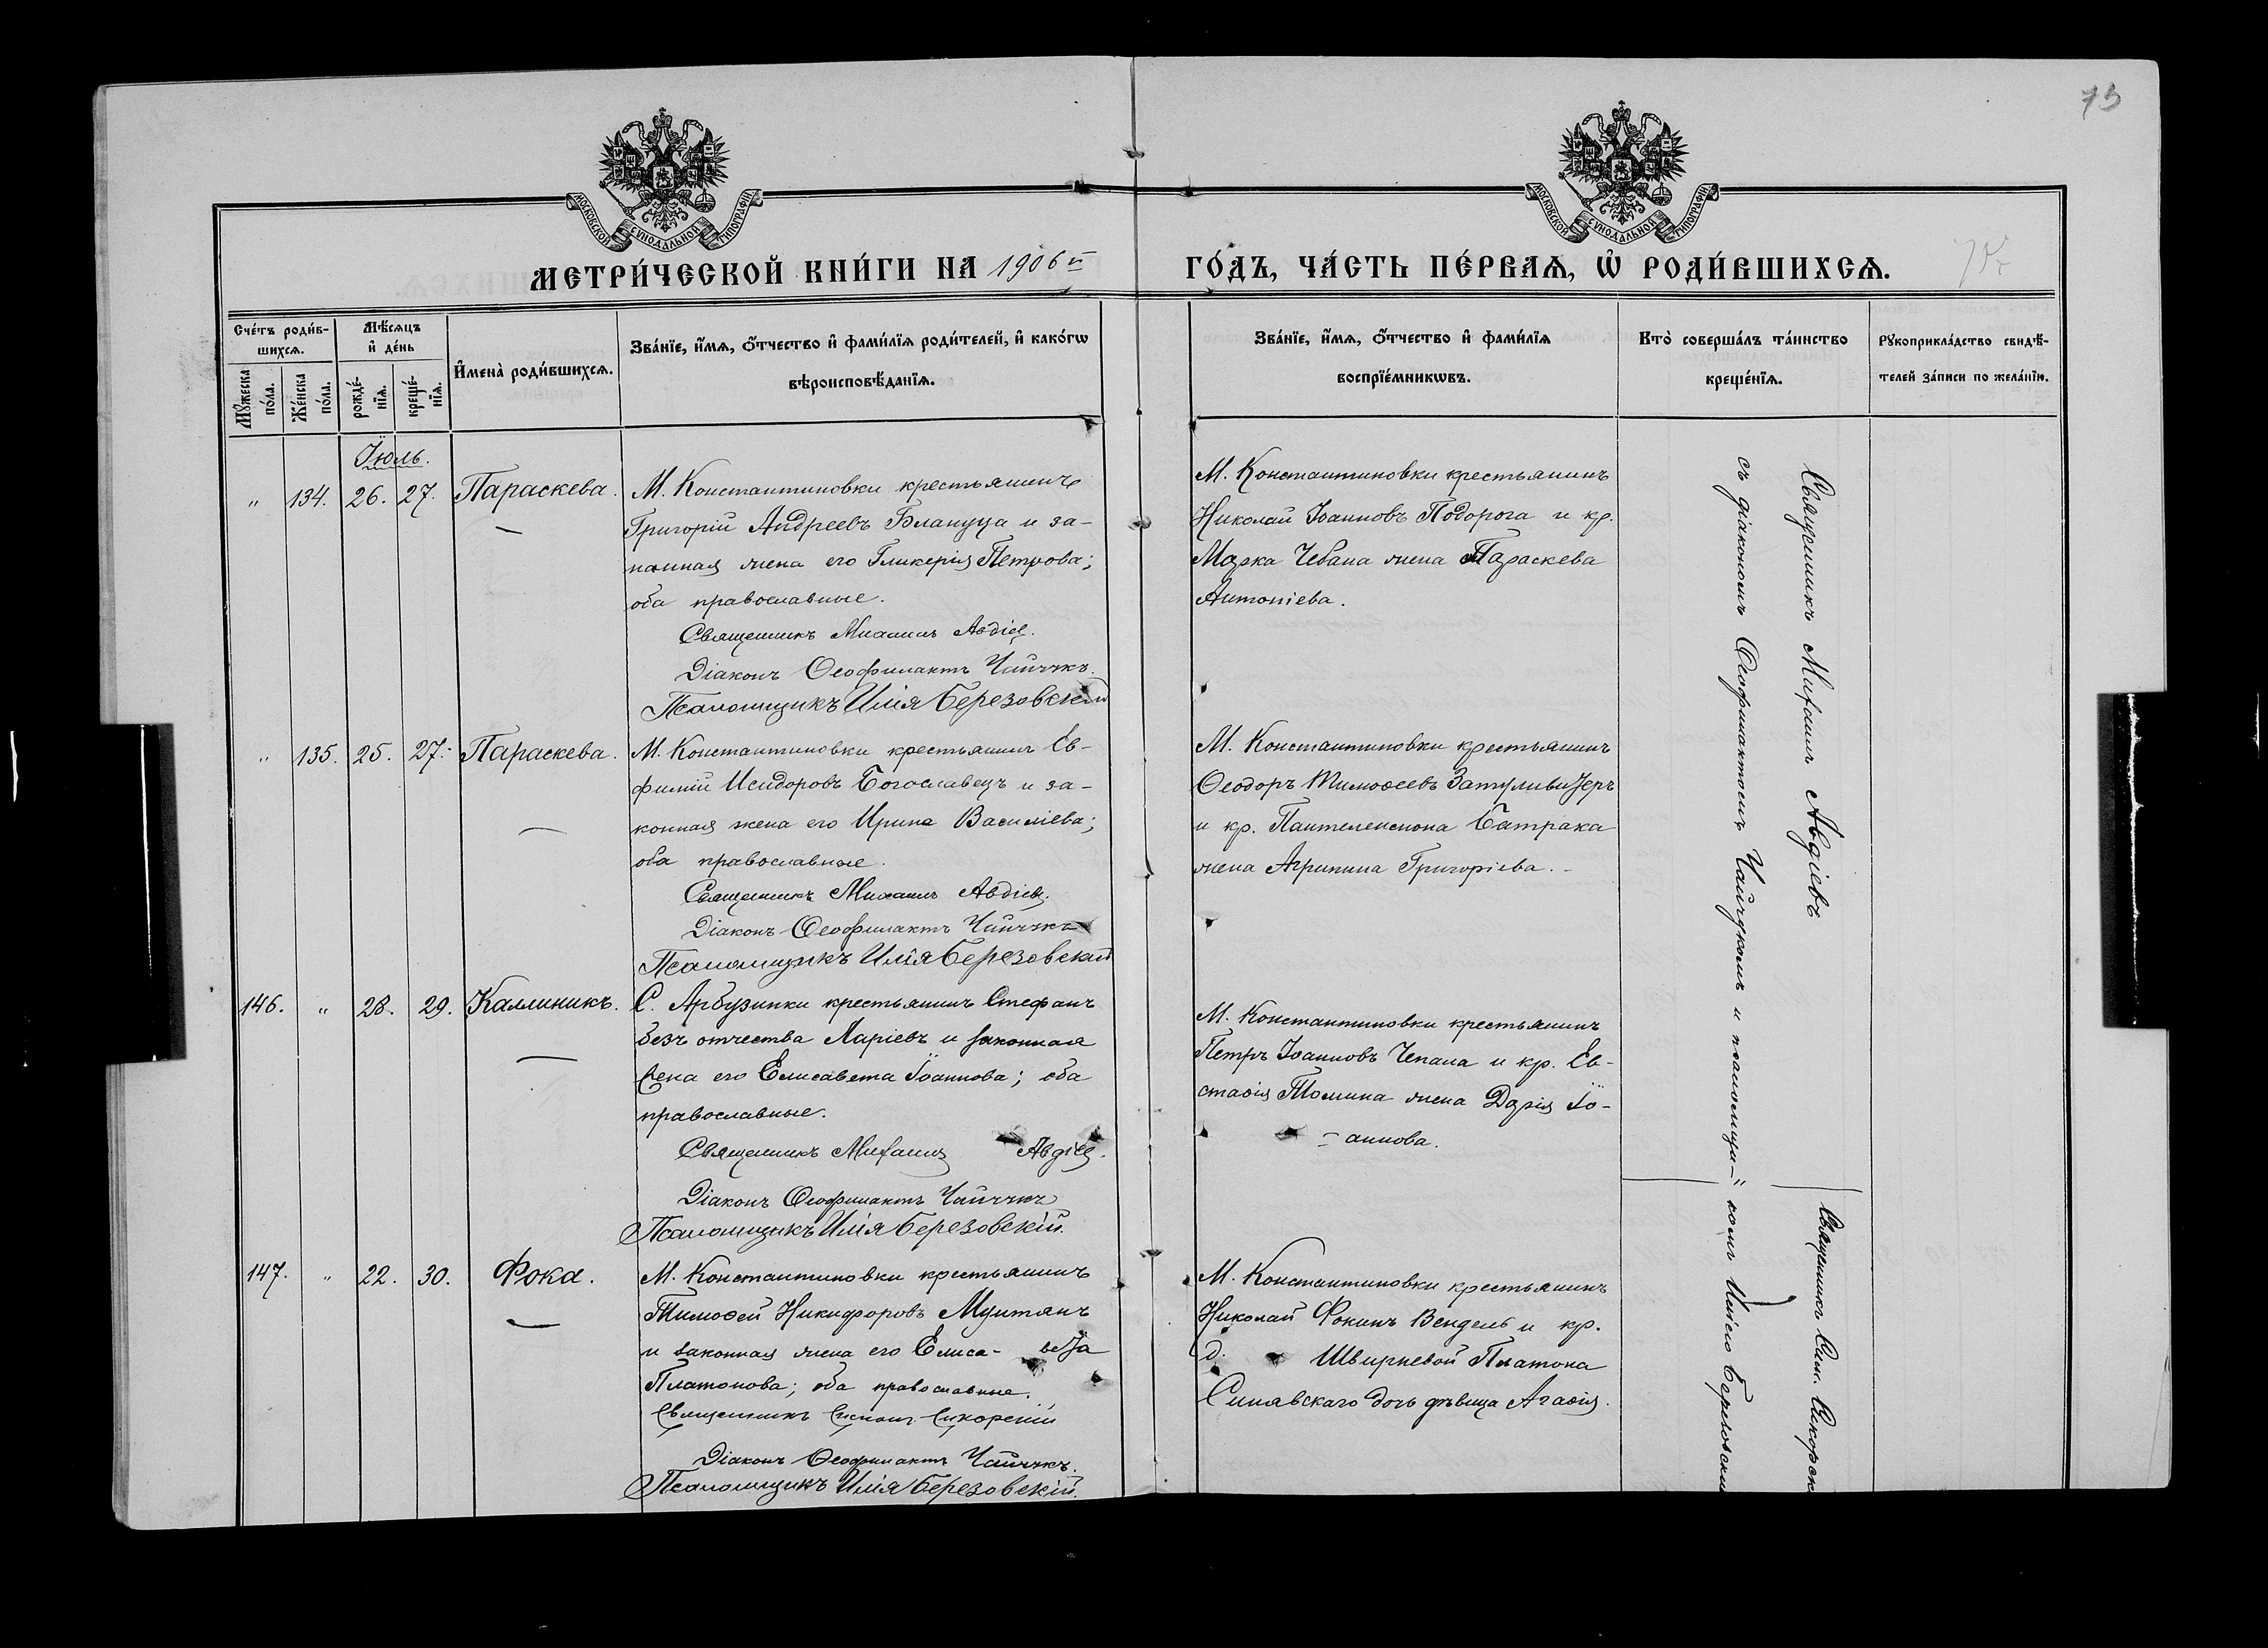 73
МОСКОВСКОЙ СѴНОДАЛЬНОЙ ТИПОГРАФІИ
МОСКОВСКОЙ СѴНОДАЛЬНОЙ ТИПОГРАФІИ
МЕТРИ́ЧЕСКОЙ КНИ́ГИ НА 1906й ГО́ДЪ, ЧА́СТЬ ПЕ́РВАѦ, Ѡ҆ РОДИ́ВШИХСѦ.
Сче́тъ роди́в-
шихсѧ.
Мꙋ́жеска по́ла.
Же́нска по́ла.
Мѣ́сѧцъ
и҆ де́нь
рожде́-
нїѧ.
креще́-
нїѧ.
И҆мена̀ роди́вшихсѧ.
Зва́нїе, и҆́мѧ, ѻ҆́тчество и҆ фами́лїѧ роди́телей, и҆ како́гѡ
вѣроисповѣ́данїѧ.
Зва́нїе, и҆́мѧ, ѻ҆́тчество и҆ фами́лїѧ
воспрїе́мникѡвъ.
Кто̀ соверша́лъ та́инство
креще́нїѧ.
Рꙋкоприкла́дство свидѣ́-
телей за́писи по жела́нїю.
Іюль.
" 134. 26. 27. Параскева.
М. Константиновки крестьянинъ
Григорій Андреевъ Блануца и за-
конная жена его Гликерія Петрова;
оба православные.
Священникъ Михаилъ Авдіев.
Діаконъ Ѳеофилактъ Чайчукъ.
Псаломщикъ Илія Березовскій
М. Константиновки крестьянинъ
Николай Іоанновъ Подорога и кр.
Марка Чебана жена Параскева
Антоніева.
" 135. 25. 27. Параскева.
М. Константиновки крестьянинъ Ев-
фимій Исидоровъ Богославецъ и за-
конная жена его Ирина Василіева;
оба православные.
Священникъ Михаилъ Авдіев.
Діаконъ Ѳеофилактъ Чайчукъ
Псаломщикъ Илія Березовскій
М. Константиновки крестьянинъ
Ѳеодоръ Тимоѳеевъ Затуливитеръ
и кр. Пантелеимона Батрака
жена Агрипина Григоріева.
146. " 28. 29. Каллиникъ.
С. Арбузинки крестьянинъ Стефанъ
безъ отчества Ларіевъ и законная
жена его Елисавета Іоаннова; оба
православные.
Священникъ Михаилъ Авдіев.
Діаконъ Ѳеофилактъ Чайчукъ
Псаломщикъ Илія Березовскій.
М. Константиновки крестьянинъ
Петръ Іоанновъ Чепала и кр. Ев-
стаѳія Томина жена Дарія Іо-
аннова.
147. " 22. 30. Фока.
М. Константиновки крестьянинъ
Тимоѳей Никифоровъ Мунтянъ
и законная жена его Елиса- вета
Платонова; оба православные.
Священникъ Симеонъ Сикорскій
Діаконъ Ѳеофилактъ Чайчукъ.
Псаломщикъ Илія Березовскій.
М. Константиновки крестьянинъ
Николай Фокинъ Вендель и кр.
д. Швирневой Платона
Синявскаго дочь дѣвица Агаѳія.
Священникъ Михаилъ Авдіевъ
съ діакономъ Ѳеофилактомъ Чайчукомъ и псаломщи-
комъ Иліею Березовским
Священникъ Сим. Сикорск